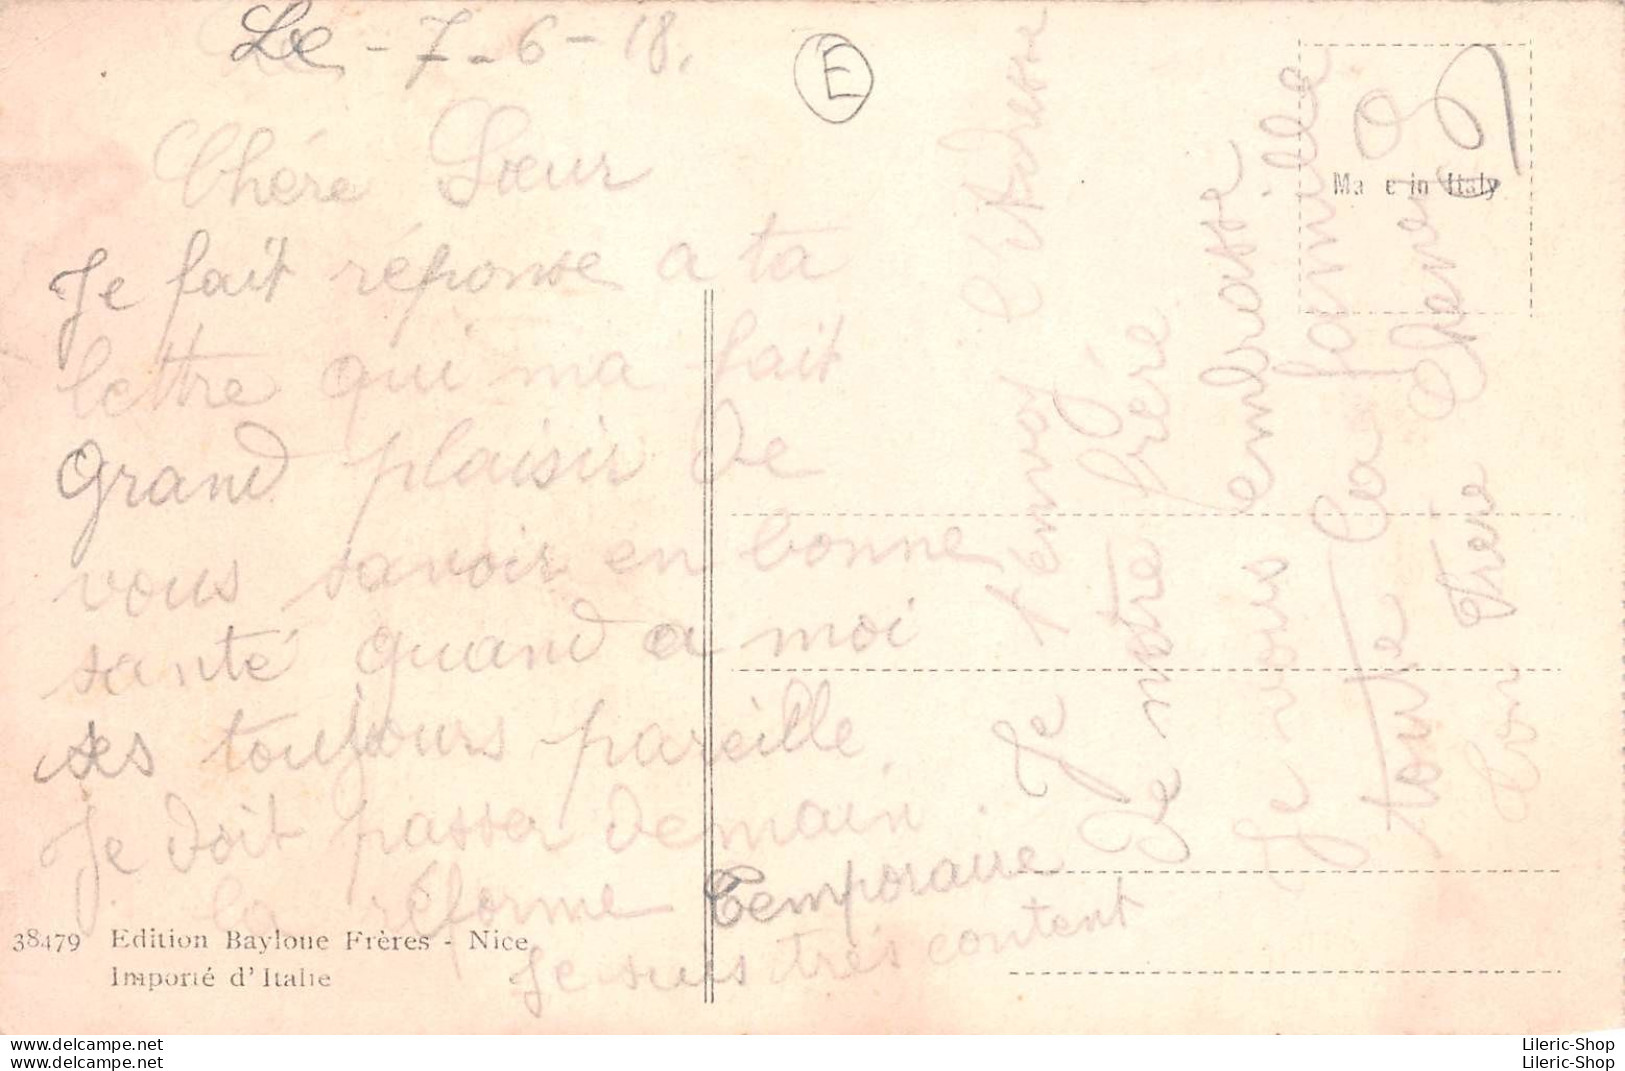 Le - 7 - 6 - 18.
E
Chére Sœur
Je fait réponse a ta
lettre qui ma fait
Grand plaisir de
vous savoir en bonne
santé quand a moi
ses toujours pareille
Je doit passer demain.
la réforme Temporaire
Je suis très content
Je t envoy l'Adresse
De notre fréré
Je vous embrasse
toute la famille
Ton Frère
Made in Italy
38479 Edition Baylone Frères - Nice
Importé d'Italie
Lileric-ebay.com
Lileric-ebay.com
Lileric-Shop
Lileric-Shop